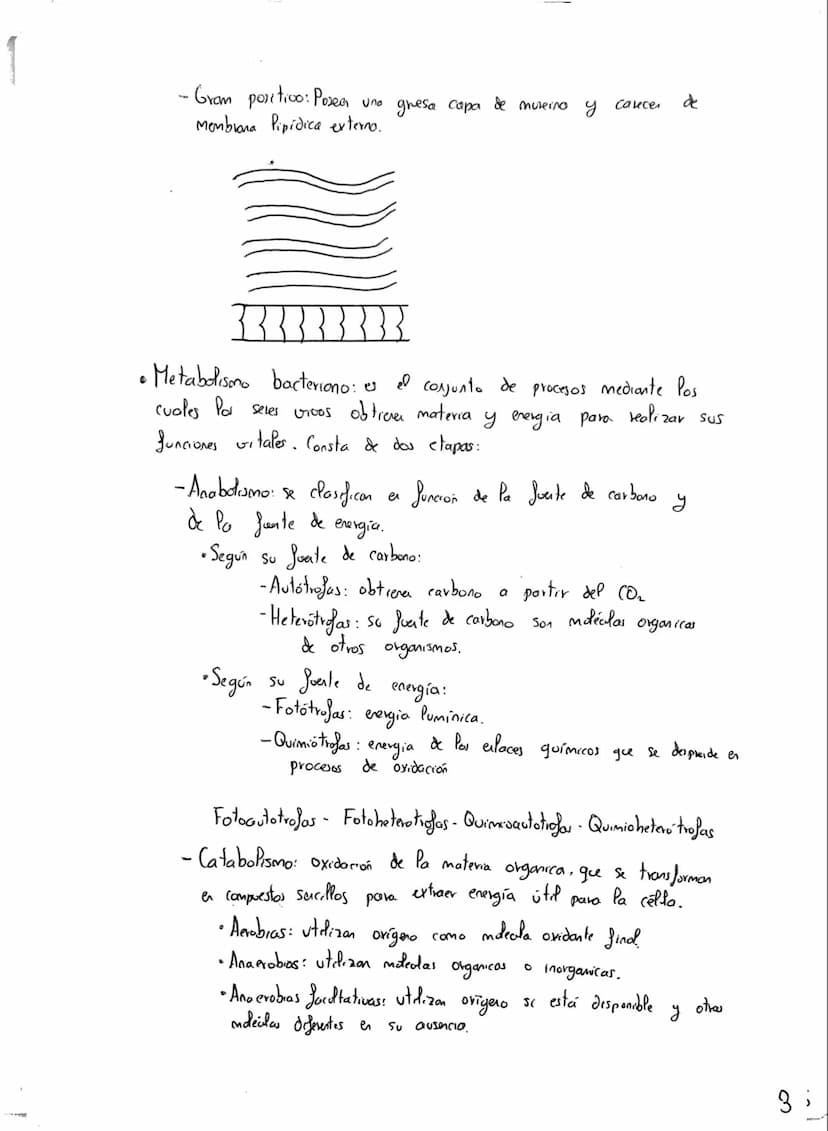 - Gram positivo: Poseen una gruesa capa de mureina y carecen de
membrana lipídica externa.
• Metabolismo bacteriano: es el conjunto de procesos mediante los
cuales los seres vivos obtienen materia y energía para realizar sus
funciones vitales. Consta de dos etapas:
- Anabolismo: se clasifican en función de la fuente de carbono y
de la fuente de energía.
• Según su fuente de carbono:
- Autótrofas: obtienen carbono a partir del CO₂
- Heterótrofas: su fuente de carbono son moléculas organicas
de otros organismos.
• Según su fuente de energía:
- Fotótrofas: energia lumínica.
- Quimiótrofas: energía de los enlaces químicos que se desprende en
procesos de oxidación
Fotoautotrofas - Fotoheterotrofas - Quimioautotrofas - Quimioheterótrofas
- Catabolismo: oxidación de la materia organica, que se transforman
en compuestos sencillos para extraer energía útil para la célula.
• Aerobias: utilizan oxígeno como molécula oxidante final
• Anaerobias: utilizan moléculas organicas o inorganicas.
• Anaerobias facultativas: utilizan oxígeno si está disponible y otras
moléculas diferentes en su ausencia.
3